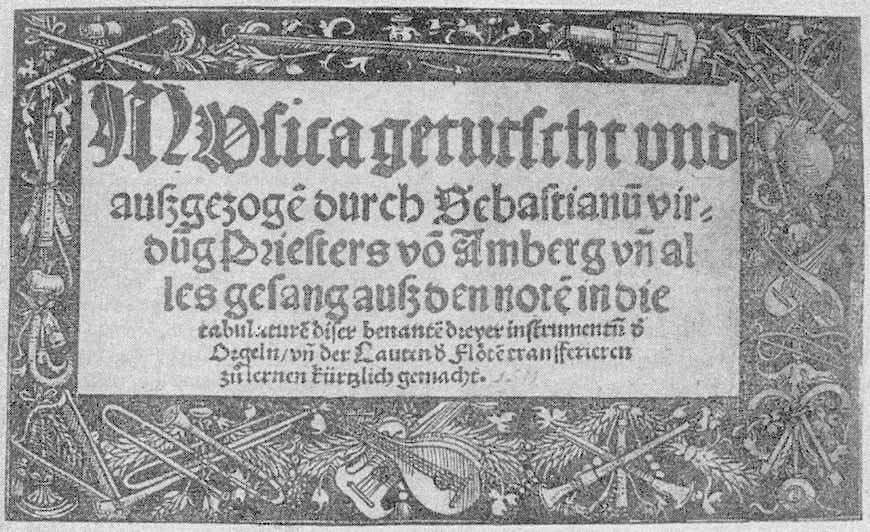 Musica getutscht und
außgezogē durch Sebastianū vir⸗
dūg Priesters vō Amberg vñ al
les gesang auß den notē in die
tabulaturē diser benantē dreyer instrumentū d̄
Orgeln/ vñ der Lauten d̄ Flötē transferieren
zū lernen kürtzlich gemacht.